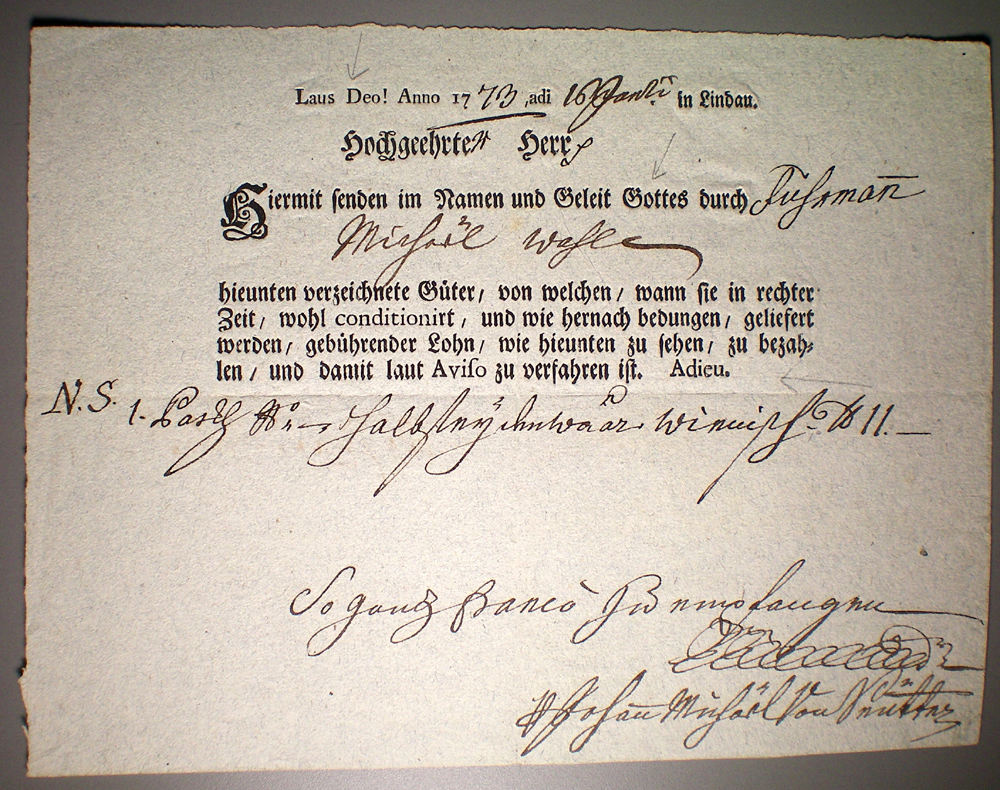 Laus Deo! Anno 1773, adi 16 in Lindau.
Hochgeehrter Herr
Hiermit senden im Namen und Geleit Gottes durch Fuhrmañ
Michaël
hieunten verzeichnete Güter/ von welchen/ wann sie in rechter
Zeit/ wohl conditionirt, und wie hernach bedungen/ geliefert
werden/ gebührender Lohn/ wie hieunten zu sehen/ zu bezah-
len/ und damit laut Aviso zu verfahren ist. Adieu.
N.S. 1. halbseÿden waar 11.
So gantz franco zu empfangen
Johañ Michaël Von